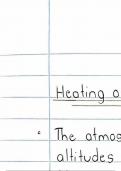 Heating a
• The atmos
altitudes